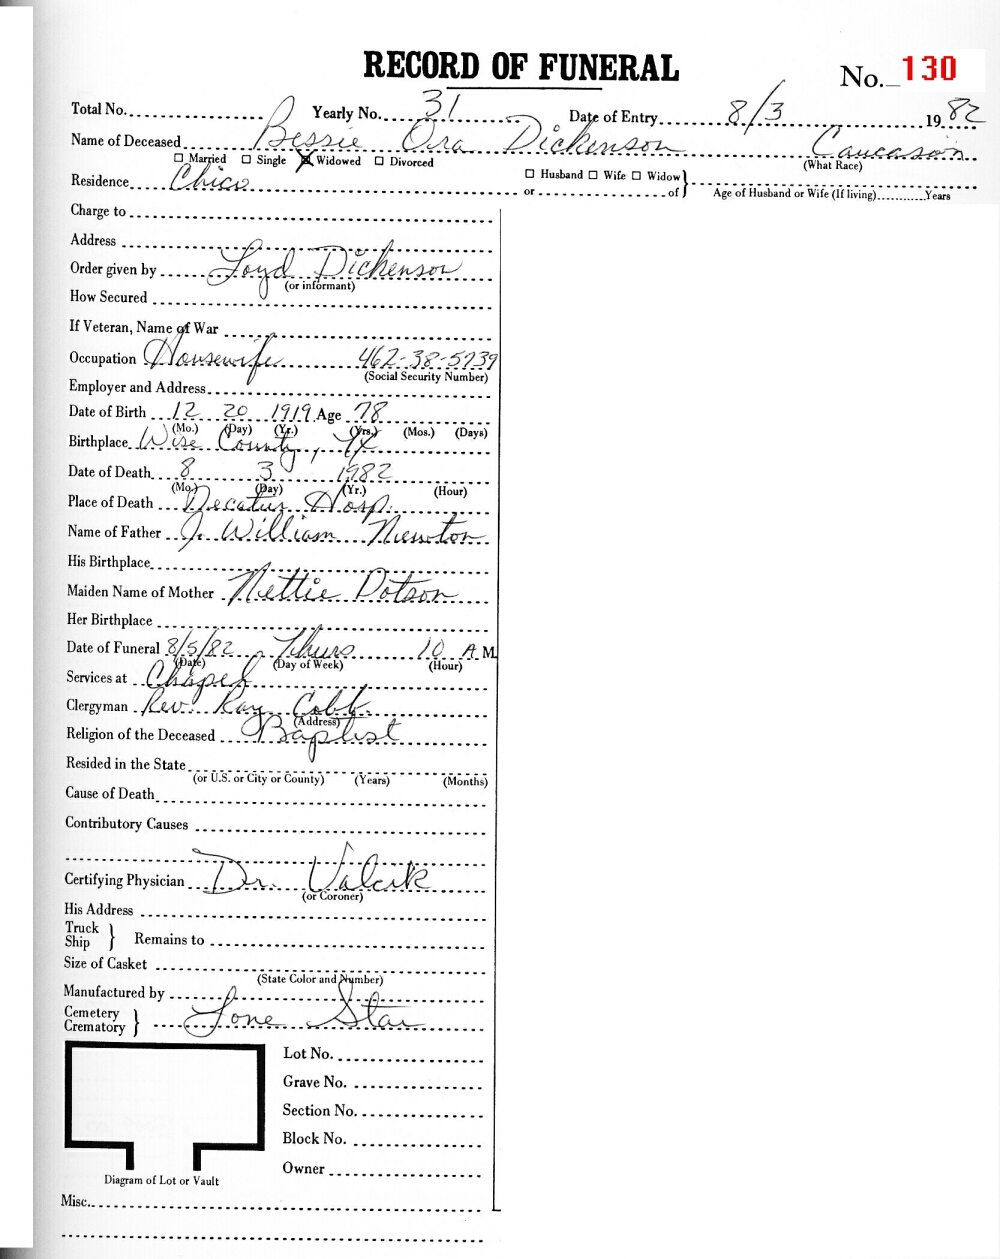 RECORD OF FUNERAL
No. 130
Total No. Yearly No. 31 Date of Entry 8/3 1982
Name of Deceased Bessie Ora Dickenson Caucasoin
☐ Married ☐ Single ☒ Widowed ☐ Divorced (What Race)
Residence Chico ☐ Husband ☐ Wife ☐ Widow
or of } Age of Husband or Wife (If living) Years
Charge to
Address
Order given by Loyd Dickenson
(or informant)
How Secured
If Veteran, Name of War
Occupation Housewife 462-38-5739
(Social Security Number)
Employer and Address
Date of Birth 12 20 1919 Age 78
(Mo.) (Day) (Yr.) (Yrs.) (Mos.) (Days)
Birthplace Wise County, TX
Date of Death 8 3 1982
(Mo.) (Day) (Yr.) (Hour)
Place of Death Decatur Hosp.
Name of Father J. William Newton
His Birthplace
Maiden Name of Mother Nettie Dotson
Her Birthplace
Date of Funeral 8/5/82 Thurs 10 A.M.
(Date) (Day of Week) (Hour)
Services at Chapel
Clergyman Rev. Ray Cobb
(Address)
Religion of the Deceased Baptist
Resided in the State
(or U.S. or City or County) (Years) (Months)
Cause of Death
Contributory Causes
Certifying Physician Dr. Valcik
(or Coroner)
His Address
Truck
Ship } Remains to
Size of Casket
(State Color and Number)
Manufactured by
Cemetery
Crematory } Lone Star
Lot No.
Grave No.
Section No.
Block No.
Owner
Diagram of Lot or Vault
Misc.